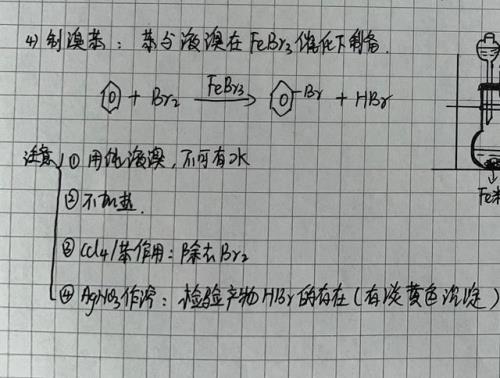 4) 制溴苯：苯与液溴在FeBr₃催化下制备.
+ Br₂ FeBr₃ → -Br + HBr
注意 ① 用纯液溴，不可有水
② 不加热.
③ CCl₄/苯作用：除去Br₂
④ AgNO₃作溶：检验产物HBr的存在(有淡黄色沉淀)
Fe